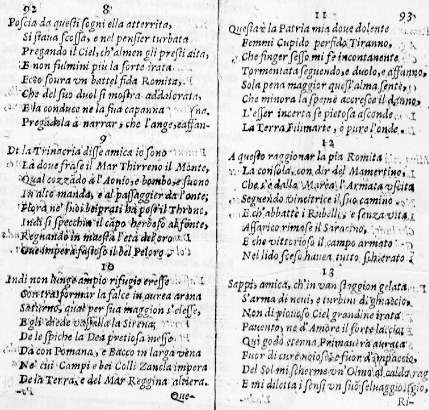 92 8
Poscia da questi sogni ella atterrita,
Si stava scossa, e nel pensier turbata
Pregando il Ciel, ch'almen gli presti aita,
E non fulmini più la sorte irata
Ecco soura un battel fida Romita,
Che del suo duol si mostra addolorata,
E la conduce ne la sua capanna
Pregadola à narrar, che l'ange, e affan-
9
De la Trinacria disse amica io sono
Là dove frà se il Mar Thirreno il Monte,
Qual cozzàdo à l'Aonio, e bombo, e suono
In alto manda, e al passaggier da l'onte;
Flora ne' suoi beiprati hà posi il Throno,
Indi si specchia il capo herboso al fonte,
Regnando in maestà l'età del oro
Que impera fastoso il bel Peloro.
10
Indi non lunge ampio rifugio eresse
Con trasformar la falce in aurea arena
Saturno, qual per sua magion s'elesse,
E gli diede vassalla la Sirena;
De le spiche la Dea pretiosa messe
Da con Pomona, e Bacco in larga vena
Ne' cui Campi e bei Colli Zancla impera
De la Terra, e del Mar Reggina altera.
Que-
11 93
Questa è la Patria mia dove dolente
Femmi Cupido perfido Tiranno,
Che finger seßo mi fè incontanente
Tormentata seguendo, e duolo, e affanno,
Sola pena maggior quest'alma sente,
Che minora la spene accresce il danno,
L'esser incerta se pietosa asconde
La Terra Filimarte, ò pure l'onde.
12
A questo raggionar la pia Romita
La consola, con dir del Mamertino,
Che s'è dalla Marea l'Armata uscita
Seguendo vincitrice il suo camino
E ch'abbattè i Rubelli, e senza vita
Affarico rimase il Saracino,
E che vittorioso il campo armato
Nel lido sceso havea tutto schierato
13
Sappi, amica, ch'in van staggion gelata
S'arma di nevi, e turbini di ghiaccio,
Non di piouoso Ciel grandine irata
Pavento, ne d'Amore il forte laccio;
Qui godo eterna Primavera aurata
Fuor di cure noiose, e fuor d'impaccio,
Del Sol mi scherme un'Olmo al calda raggio
E mi diletta i sensi un suol selvaggio,
Ri-